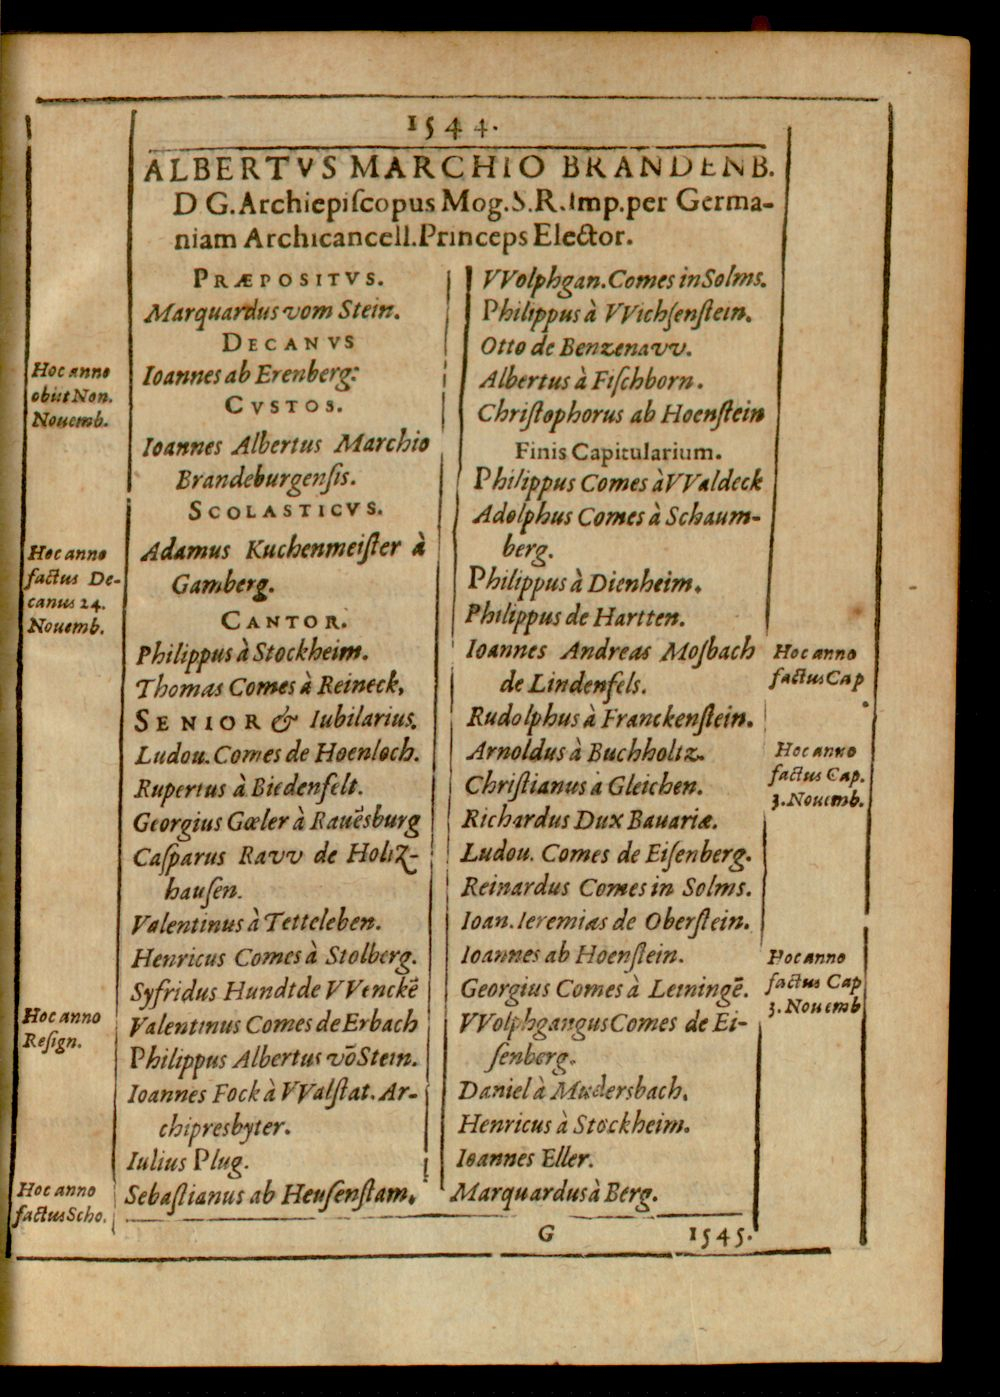 1544.
ALBERTVS MARCHIO BRANDENB.
D G. Archiepiſcopus Mog. S. R. Imp. per Germa-
niam Archicancell. Princeps Elector.
PRÆPOSITVS.
Marquardus vom Stein.
DECANVS
Ioannes ab Erenberg:
CVSTOS.
Ioannes Albertus Marchio
Brandeburgenſis.
SCOLASTICVS.
Adamus Kuchenmeiſter à
Gamberg.
CANTOR.
Philippus à Stockheim.
Thomas Comes à Reineck.
SENIOR & Iubilarius.
Ludou. Comes de Hoenloch.
Rupertus à Biedenfelt.
Georgius Gœler à Rauēsburg
Caſparus Ravv de Holtz-
hauſen.
Valentinus à Tetteleben.
Henricus Comes à Stolberg.
Syfridus Hundt de VVenckē
Valentinus Comes de Erbach
Philippus Albertus vō Stein.
Ioannes Fock à VValſtat. Ar-
chipresbyter.
Iulius Plug.
Sebaſtianus ab Heuſenſtam.
Hoc anno
obiit Non.
Nouemb.
Hoc anno
factus De-
canus 24.
Nouemb.
Hoc anno
Reſign.
Hoc anno
factus Scho.
VVolphgan. Comes in Solms.
Philippus à VVichſenſtein.
Otto de Benzenavv.
Albertus à Fiſchborn.
Chriſtophorus ab Hoenſtein
Finis Capitularium.
Philippus Comes à VValdeck
Adolphus Comes à Schaum-
berg.
Philippus à Dienheim.
Philippus de Hartten.
Ioannes Andreas Moſbach
de Lindenfels.
Rudolphus à Franckenſtein.
Arnoldus à Buchholtz.
Chriſtianus à Gleichen.
Richardus Dux Bauariæ.
Ludou. Comes de Eiſenberg.
Reinardus Comes in Solms.
Ioan. Ieremias de Oberſtein.
Ioannes ab Hoenſtein.
Georgius Comes à Leiningē.
VVolphgangus Comes de Ei-
ſenberg.
Daniel à Mudersbach.
Henricus à Stockheim.
Ioannes Eller.
Marquardus à Berg.
Hoc anno
factus Cap
Hoc anno
factus Cap.
3. Nouemb.
Hoc anno
factus Cap
3. Nouemb
G
1545.